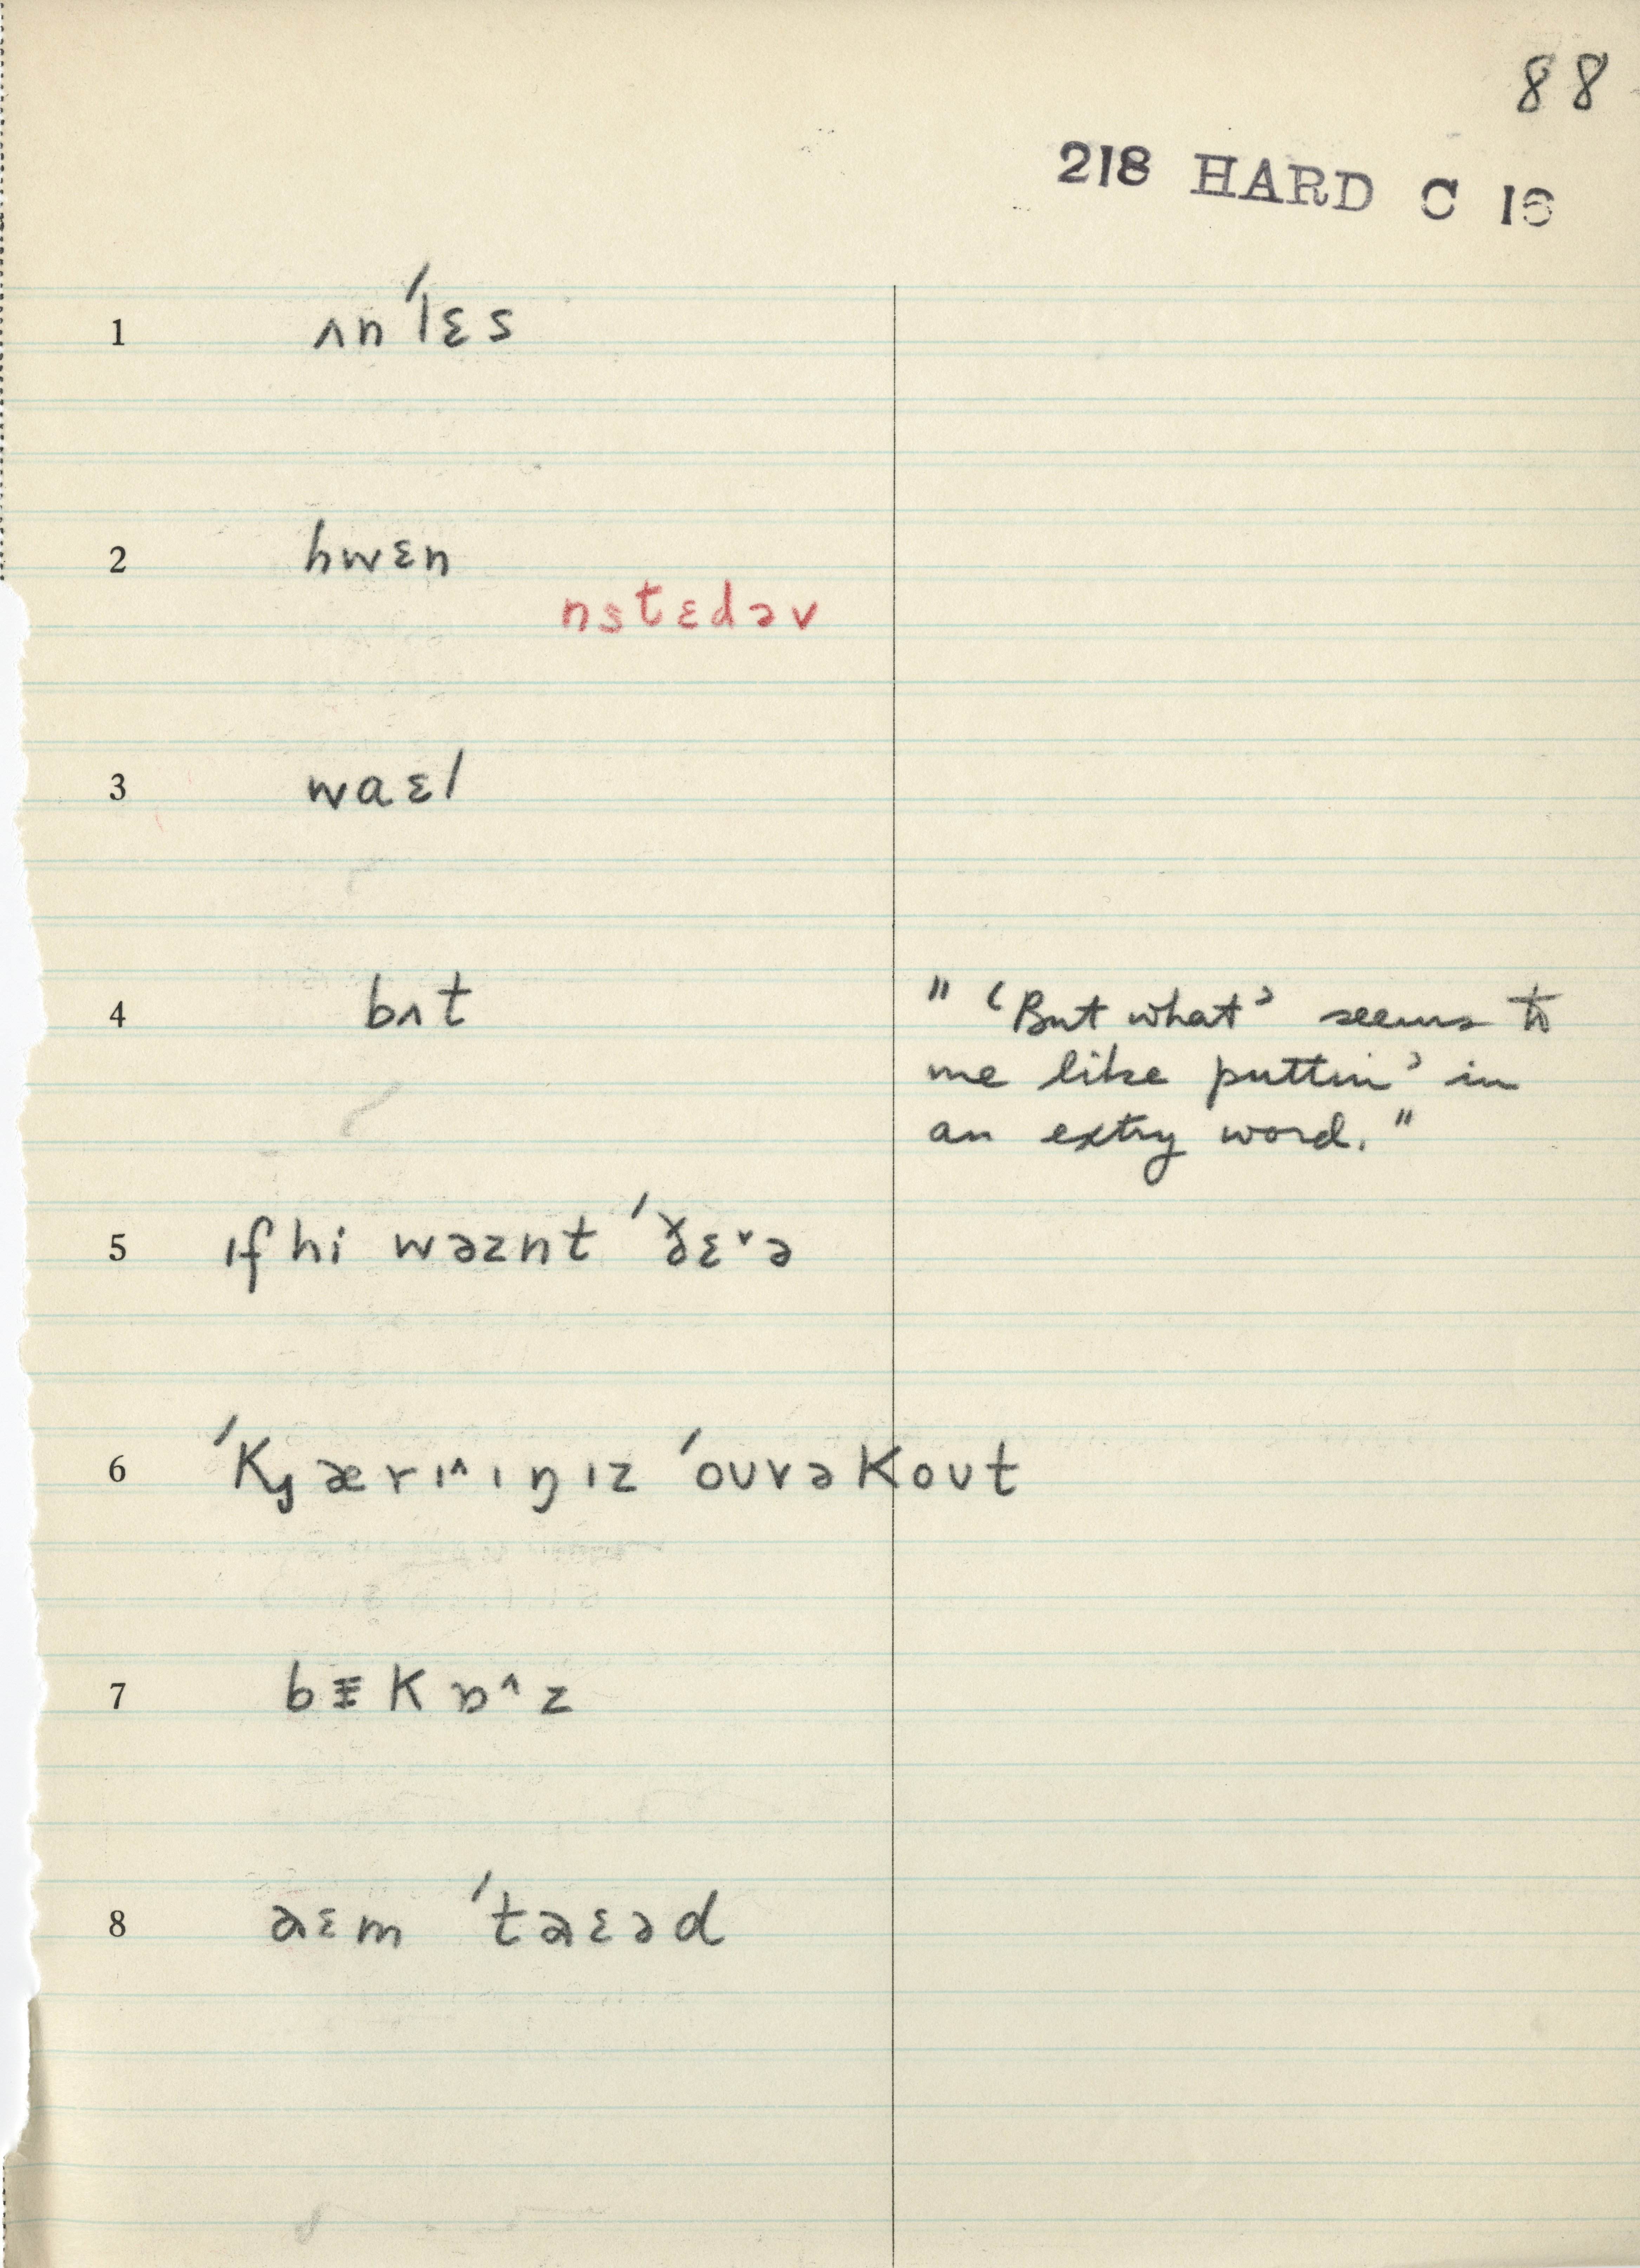 88
218 HARD C 16
1 ʌn ˈlɛs
2 hwɛn
nstɛdəv
3 waɛl
4 bʌt
" 'But what' seems to
me like puttin' in
an extry word. "
5 ɪf hi wəznt ˈðɛ˅ə
6 ˈKȷærɪ˄ɪŋɪz ˈoʊvəKoʊt
7 K ɒ˄z
8 m